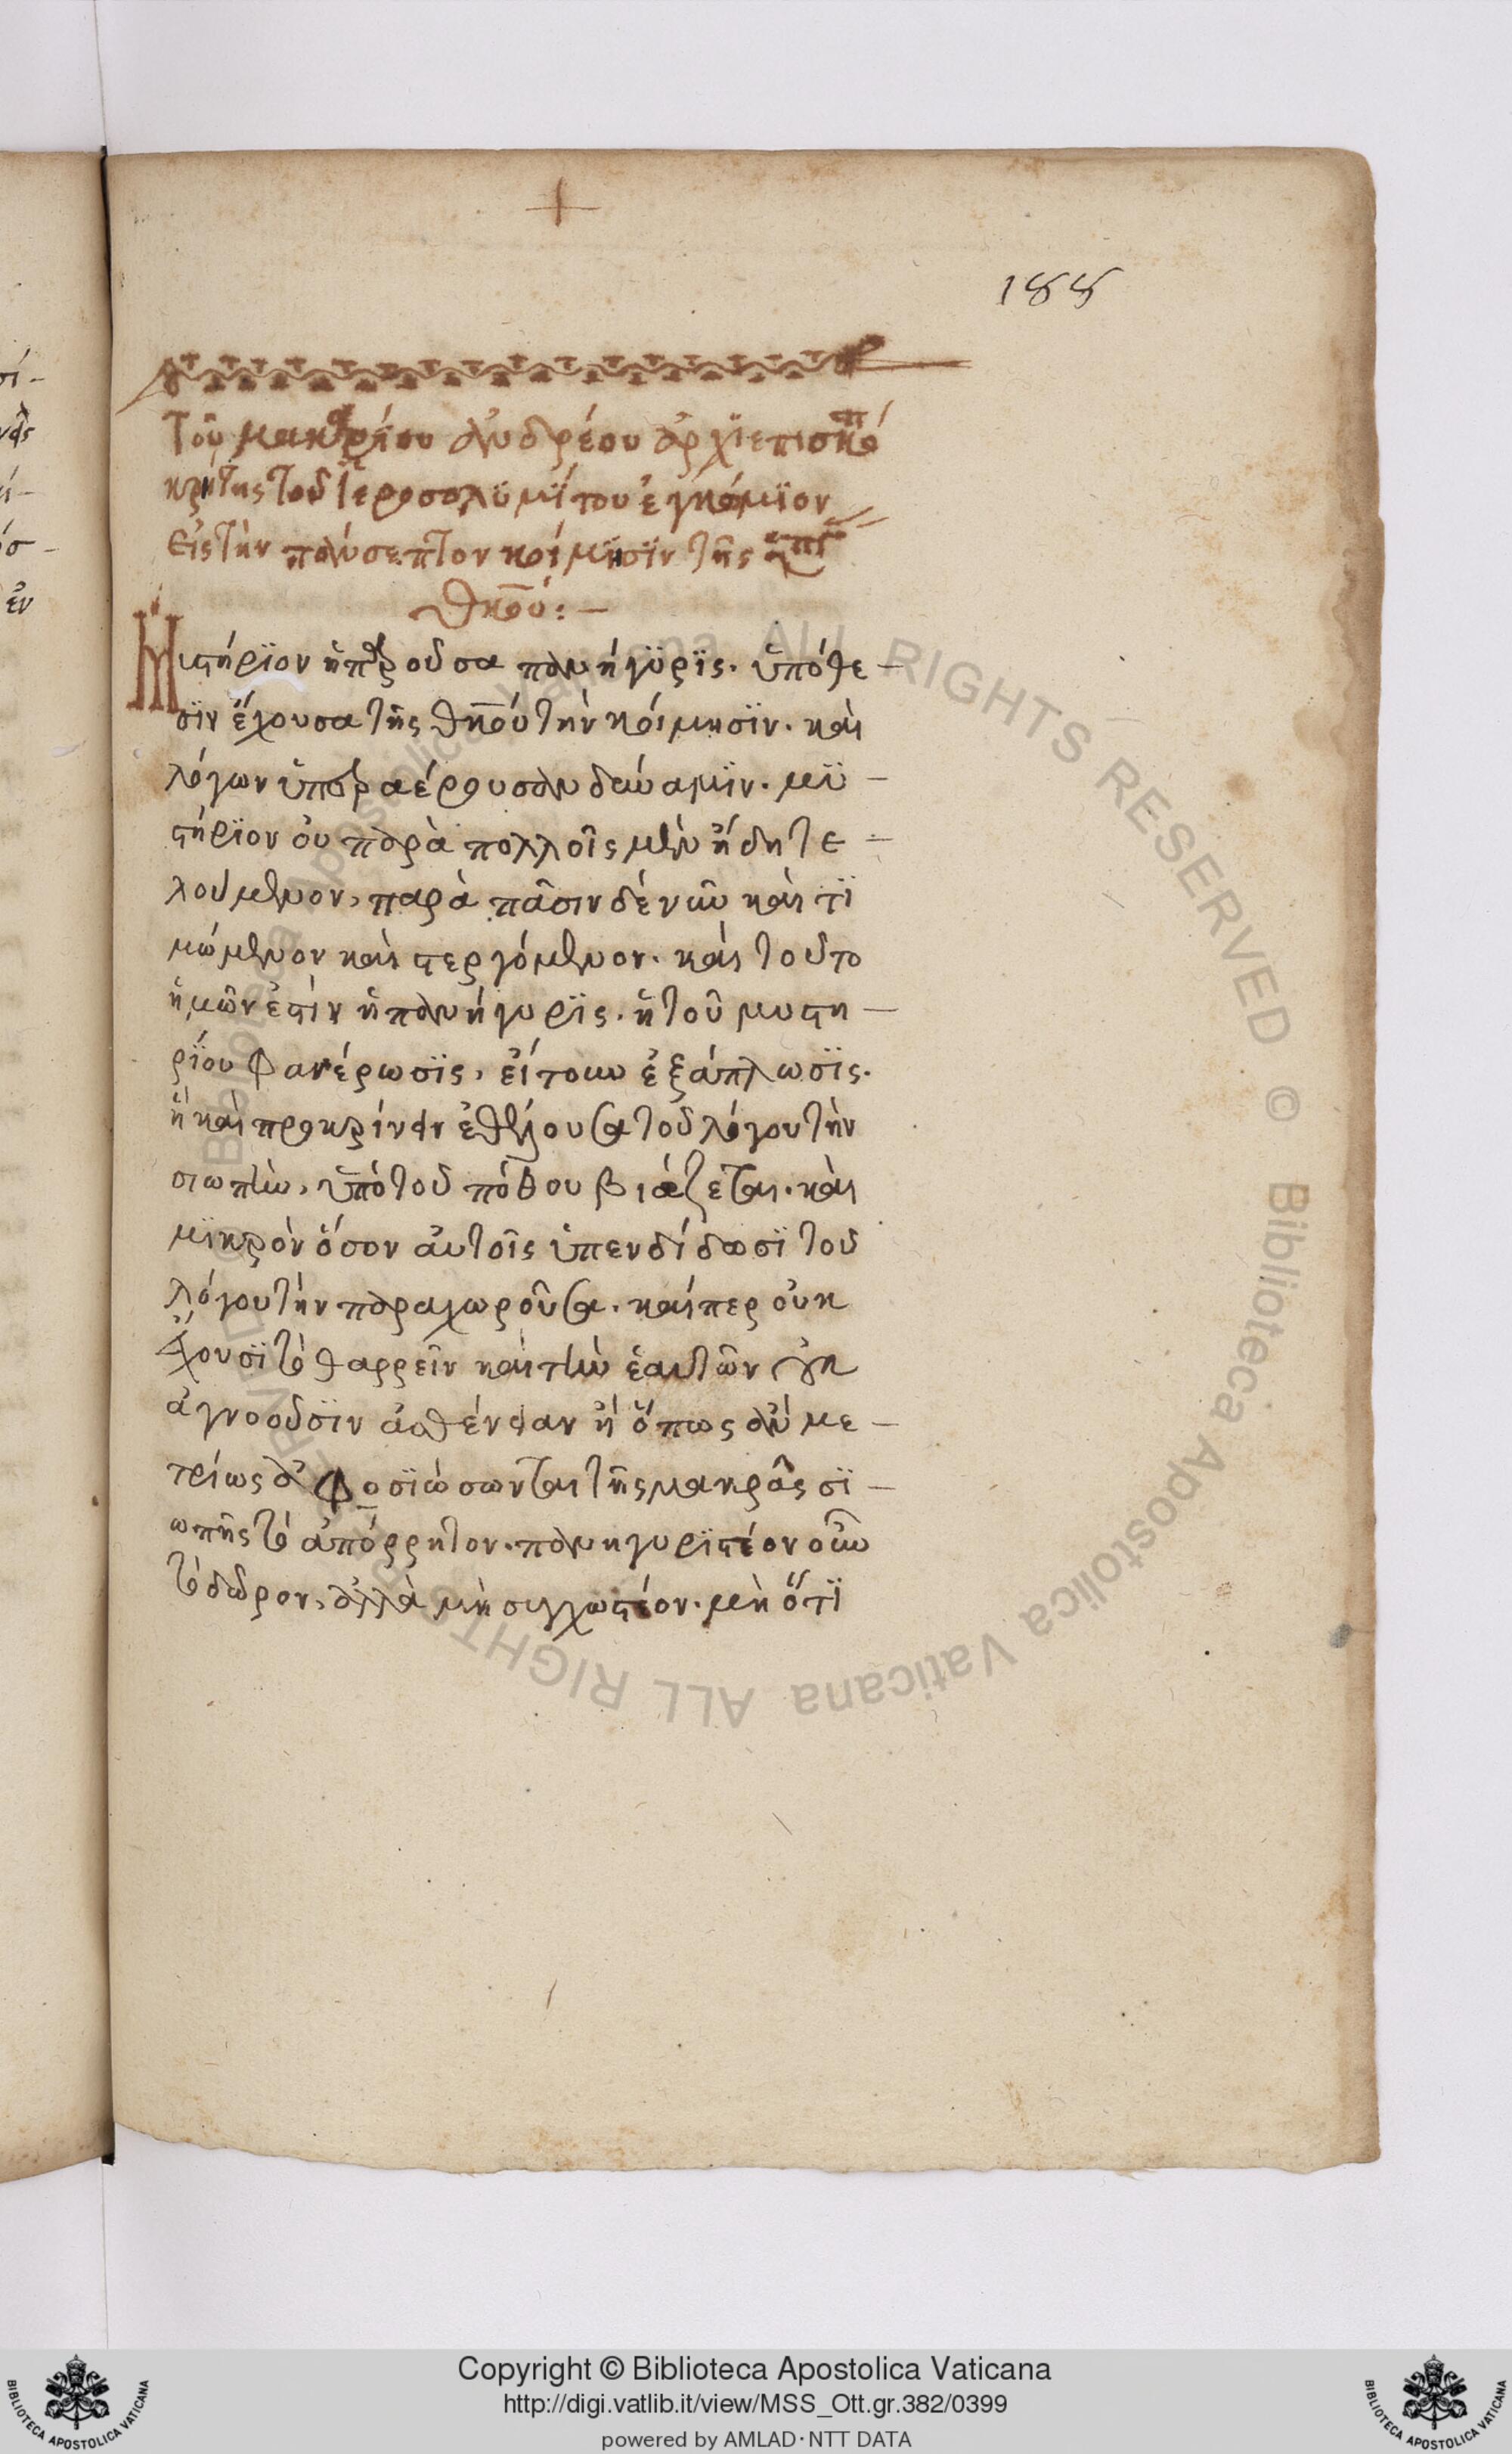 188
Τοῦ μακαρίου ἀνδρέου ἀρχϊεπισκό
κρήτης τοῦ ἱεροσολϋμίτου ἐγκόμϊον
εἰς τὴν πάνσεπτον κοίμησϊν τῆς
θκου:—
Μυστήρϊον ἡ παροῦσα πανήγϋρϊς. ὑπόθε-
σϊν ἔχουσα τῆς θκου τὴν κοίμησϊν. καὶ
λόγων ὑπεραέρουσαν δύναμϊν. μϋ-
στήρϊον οὐ παρὰ πολλοῖς μὲν ἤδη τε-
λούμενον, παρὰ πᾶσιν δὲ νῦν καὶ τϊ
μώμενον καὶ στεργόμενον. καὶ τοῦτο
ἡμῶν ἐστὶν ἡ πανήγυρϊς. ἡ τοῦ μυστη-
ρίου φανέρωσϊς, εἴτουν ἐξάπλωσϊς.
ἣ καὶ προκρίνειν ἐθέλουσα τοῦ λόγου τὴν
σιωπὴν, ὑπὸ τοῦ πόθου βιάζεται. καὶ
μϊκρὸν ὅσον αὐτοῖς ὑπενδίδωσϊ τοῦ
λόγου τὴν παραχωροῦσα. καίπερ οὐκ
ἔχουσϊ τὸ θαρρεῖν καὶ τὴν ἑαυτῶν οὐκ
ἀγνοοῦσϊν ἀσθένειαν ἢ ὅπως ἂν με-
τρίως ἀφοσϊώσωνται τῆς μακρᾶς σϊ-
ωπῆς τὸ ἀπόρρητον. πανηγυρϊστέον οὖν
τὸ δῶρον, ἀλλὰ μὴ σιγχωστέον. μὴ ὅτϊ
Copyright © Biblioteca Apostolica Vaticana
http://digi.vatlib.it/view/MSS_Ott.gr.382/0399
powered by AMLAD·NTT DATA